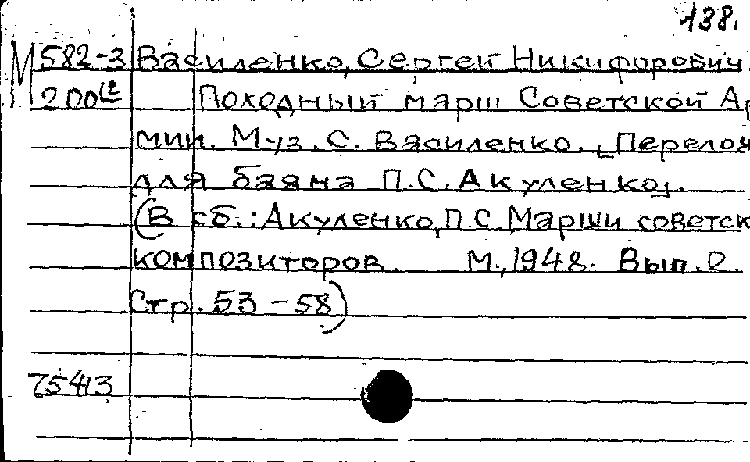 138.
М 582-3 Василенко, Сергей Никифорович.
200 Походный марш Советской Ар
мии. Муз. С. Василенко. [Перелож
для баяна П.С. Акуленко].
(В сб.: Акуленко, П.С. Марши советск
композиторов. М., 1948. Вып. 2.
Стр. 53-58)
75413